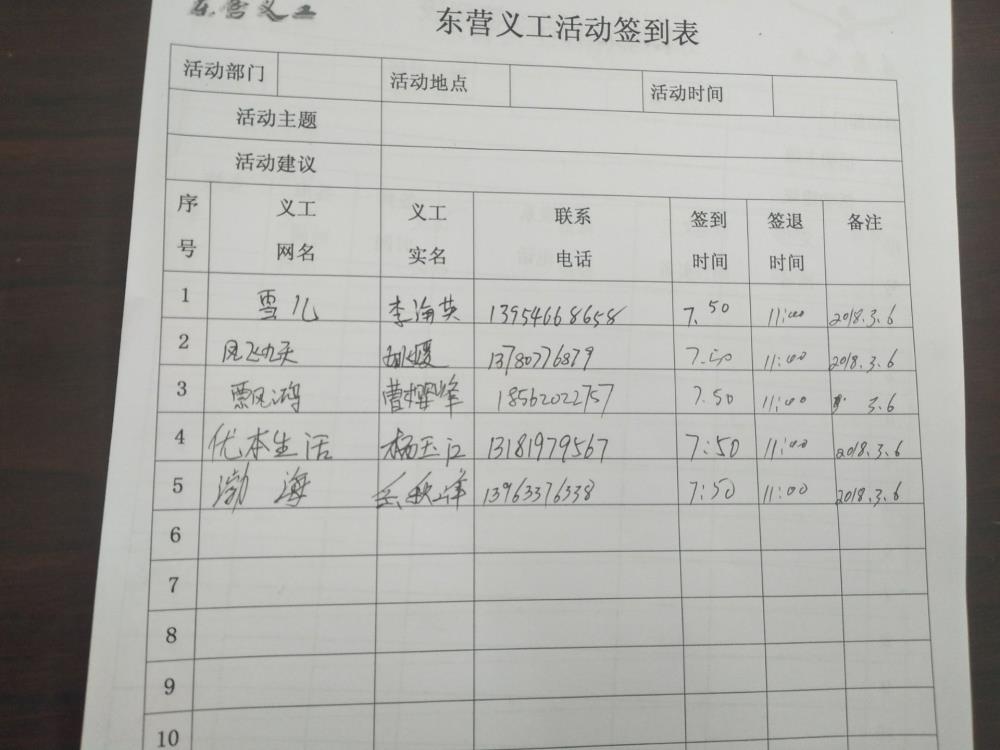 东营义工
东营义工活动签到表
活动部门 活动地点 活动时间
活动主题
活动建议
序号 义工网名 义工实名 联系电话 签到时间 签退时间 备注
1 雪儿 李海英 13954668658 7.50 11:00 2018.3.6
2 风飞九天 媛 13780776879 7.50 11:00 2018.3.6
3 飘风鸿 曹樱峰 18562022757 7.50 11:00 3.6
4 优本生活 杨玉江 13181979567 7:50 11:00 2018.3.6
5 渤海 秋峰 13963376338 7:50 11:00 2018.3.6
6
7
8
9
10